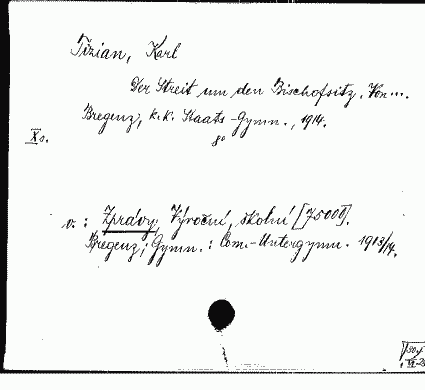 Tizian, Karl
Der Streit um den Bischofsitz. Von ....
Bregenz, k.k. Staats-Gymn., 1914.
8°
X o.
v.: Zprávy, Výroční, školní [75000].
Bregenz; Gymn.: Com.-Untergymn. 1913/14.